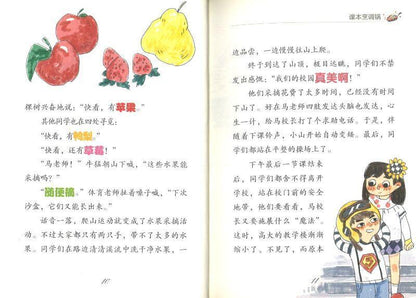 棵树兴奋地说：“快看，有苹果。”
其他同学也在四处寻觅：
“快看，有鸭梨。”
“快看，还有草莓！”
“马老师！”牛猛朝山下喊，“这些水果能
采摘吗？”
“随便摘。”体育老师拉着嗓子喊，“下次
沙盒，它们又能长出来。”
话音一落，爬山运动就变成了水果采摘活
动。不过大家都只有两只手，带不了太多的水
果。同学们在路边清清溪流中洗干净水果，一
课本烹调锅
边品尝，一边慢慢往山上爬。
终于到达了山顶，极目远眺，同学们不禁
发出感慨：“我们的校园真美啊！”
他们采摘花费了太多时间，已经没有时间
下山了。好在马老师四肢发达头脑也发达，心
生一计，给马校长打了个求助电话。于是，伴
随着下课铃声，小山开始自动变矮。最后，同
学们都站在平整的操场上了。
下午最后一节课结束
后，同学们都舍不得离开
学校，站在校门前的安全
地带，他们要看看，马校
长又要施展什么“魔法”。
这时，高大的教学楼渐渐
缩小了。不见了，而原本